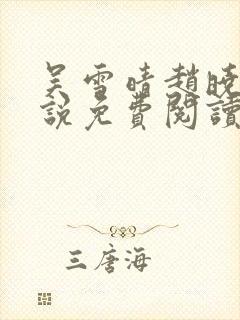 吴雪晴趙曉
說免費閱讀
三唐海